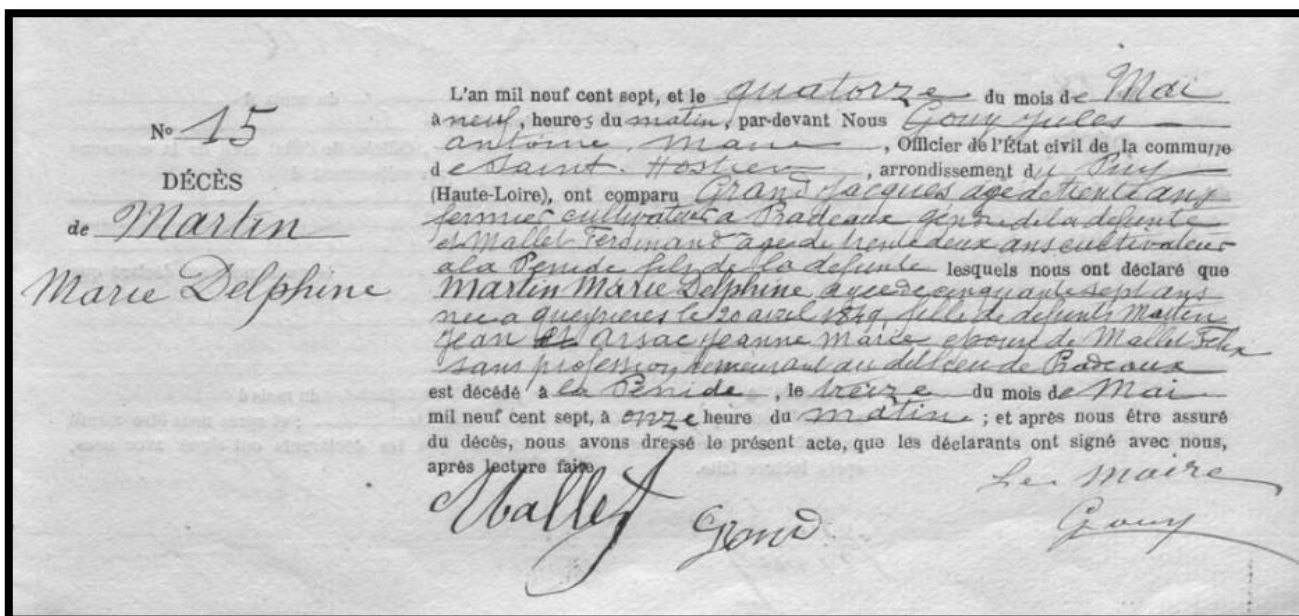 N° 15
DÉCÈS
de Martin
Marie Delphine
L'an mil neuf cent sept, et le quatorze du mois de Mai
à neuf, heures du matin, par-devant Nous Gouy Jules
antoine Marie, Officier de l'État civil de la commune
de Saint-Hostien, arrondissement du Puy
(Haute-Loire), ont comparu Grand Jacques agé de trente ans
fermier cultivateur a Pradeaux gendre de la defunte
et Mallet Ferdinand age de trente deux ans cultivateur
a la Penide fils de la defunte lesquels nous ont déclaré que
Martin Marie Delphine, agée de cinquante sept ans
nee a queyrieres le 20 avril 1849, fille de defunts Martin
Jean et Arsac Jeanne Marie epouse de Mallet Felix
sans profession demeurant au de Pradeaux
est décédé à la Penide, le treize du mois de Mai
mil neuf cent sept, à onze heure du matin ; et après nous être assuré
du décès, nous avons dressé le présent acte, que les déclarants ont signé avec nous,
après lecture faite.
Le Maire
Mallet Grand Gouy